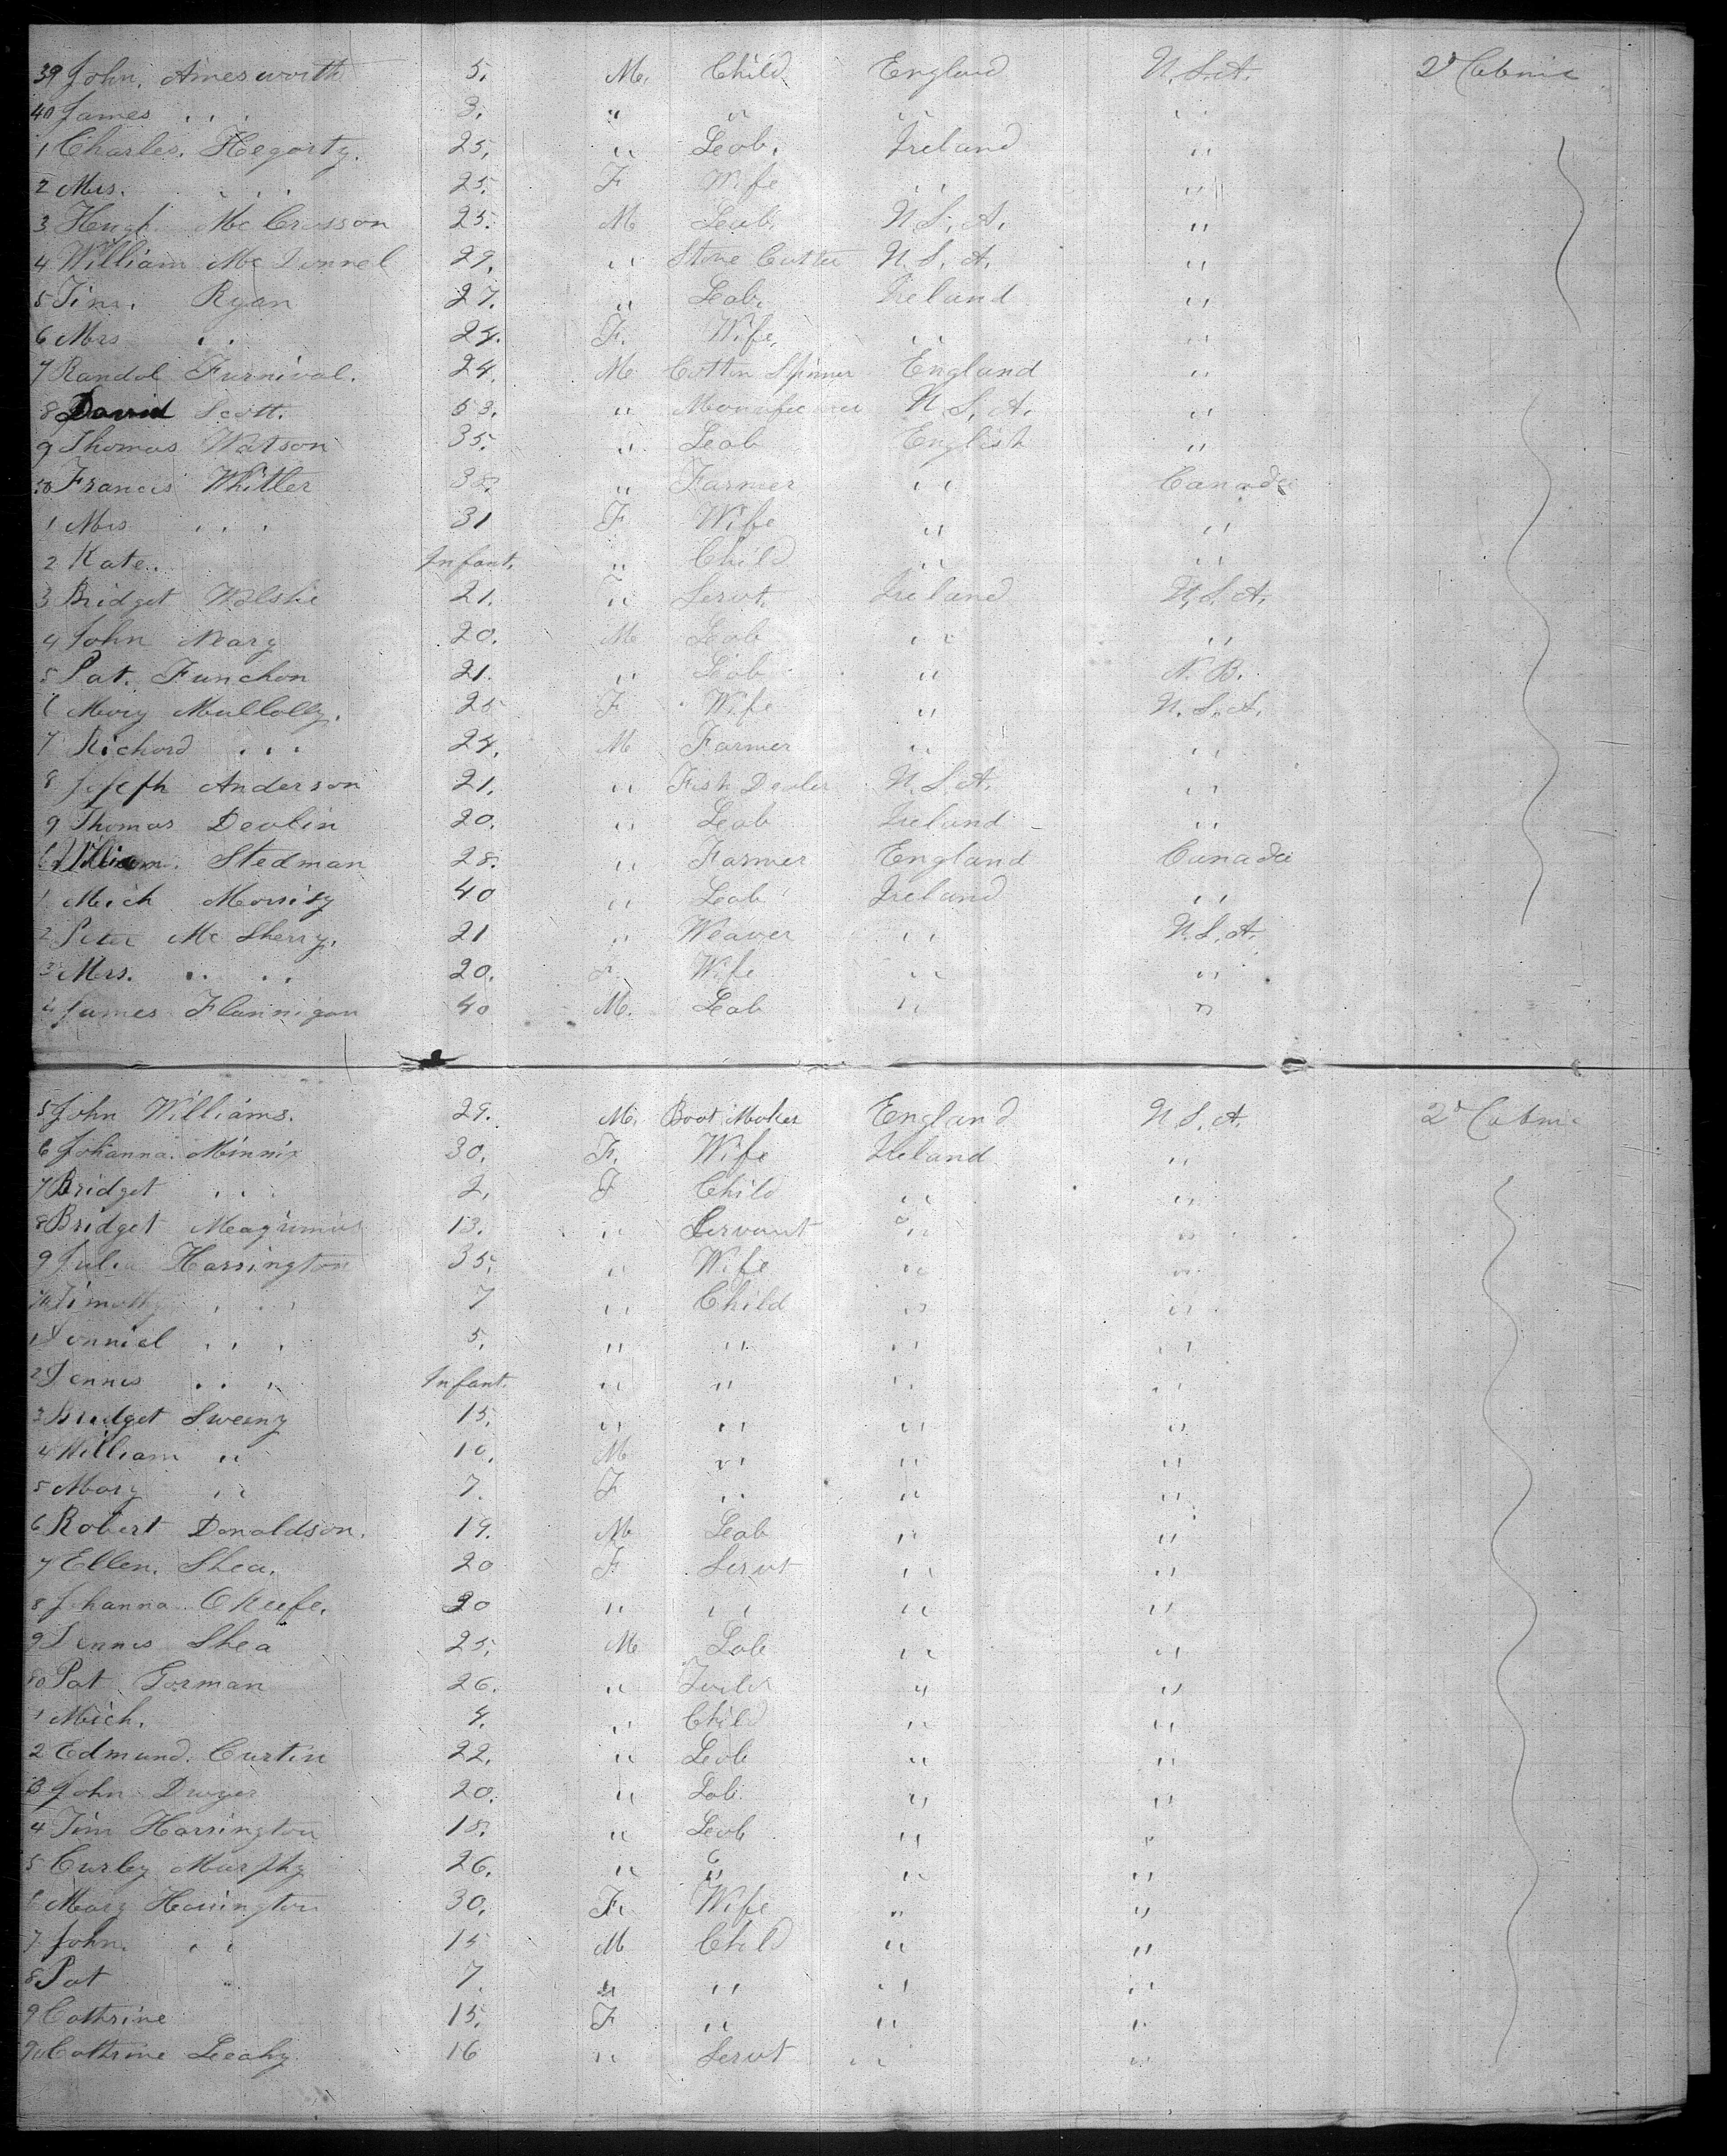 39 John. Amesworth 5. M. Child England U.S.A. 2d Cabnie
40 James " " 3. " " " "
1 Charles. Hegorty. 25. " Leab. Ireland "
2 Mrs. " " 25. F Wife " "
3 Hugh Mc Crosson 25. M Leab. U.S.A. "
4 William Mc Donnel 29. " Stone Cutter U.S.A. "
5 Tim. Ryan 27. " Leab. Ireland "
6 Mrs " " 24. F. Wife. " "
7 Randol Furnival. 24. M Cotton Spinner England "
8 David Scott. 53. " U.S.A. "
9 Thomas Watson 35. " Leab English "
50 Francis Whitler 38. " Farmer " Canada
1 Mrs " " 31 F Wife " "
2 Kate. Infant. " Child " "
3 Bridget Walshe 21. F Servt. Ireland U.S.A.
4 John Neary 20. M Leab " "
5 Pat. Funchon 21. " Leab " N.B.
6 Mary Mullolly. 25 F Wife " U.S.A.
7 Richard " " 24. M Farmer " "
8 Joseph Anderson 21. " Fish Dealer U.S.A. "
9 Thomas Devlin 20. " Leab Ireland "
6 William. Stedman 28. " Farmer England Canada
1 Mich Morrisy 40 " Leab Ireland "
2 Peter Mc Sherry. 21 " Weaver " U.S.A.
3 Mrs. " " 20. F. Wife " "
4 James Flannigan 40 M. Leab " "
5 John Williams. 29. M. Boot Maker England U.S.A. 2d Cabnie
6 Johanna. Minnix 30. F. Wife Ireland "
7 Bridget " " 2. F Child " "
8 Bridget 13. " Servant " "
9 Julia Harrington 35. " Wife " "
70 Timothy " " 7 " Child " "
1 Donniel " " 5. " " " "
2 Dennis " " Infant. " " " "
3 Bridget Sweeny 15. " " " "
4 William " 10. M " " "
5 Mary " 7. F " " "
6 Robert Donaldson. 19. M Leab " "
7 Ellen. Shea. 20 F Servt " "
8 Johanna OKeefe. 20 " " " "
9 Dennis Shea 25. M Lab " "
80 Pat Gorman 26. " " "
1 Mich. 4. " Child " "
2 Edmund. Curtin 22. " Leab " "
3 John Dwyer 20. " Lab. " "
4 Tim Harrington 18. " Leab " "
5 Curley Murphy 26. " " " "
6 Mary Harrington 30. F. Wife " "
7 John. " " 15 M Child " "
8 Pat " 7. " " " "
9 Cathrine 15. F " " "
90 Cathrine Leahy 16 " Servt " "